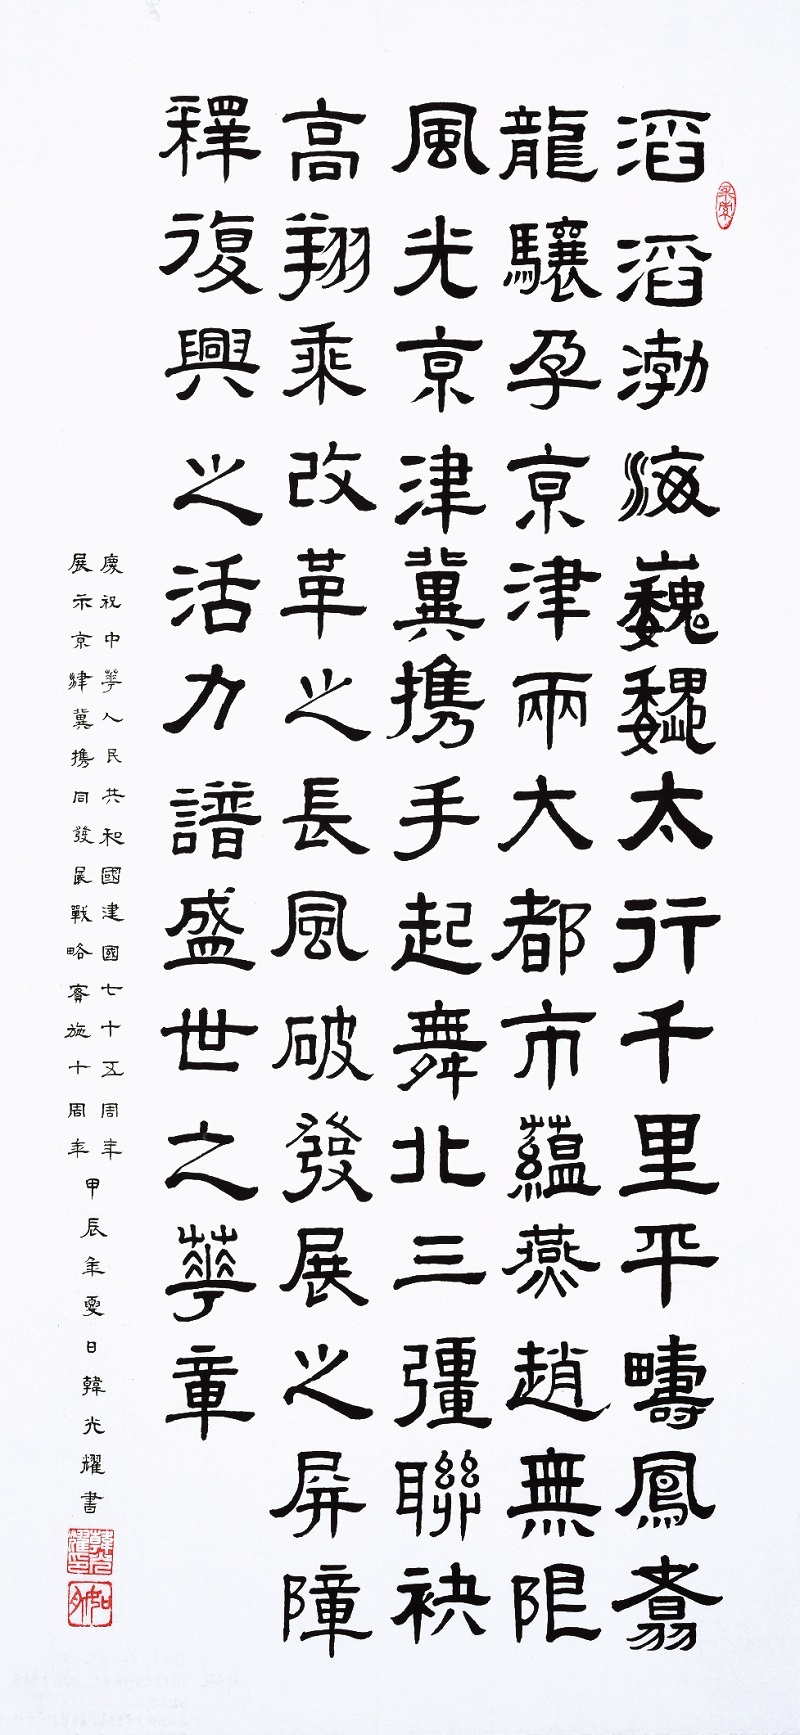 滔滔渤海巍巍太行千里平疇鳳翥
龍驤孕京津兩大都市蘊燕趙無限
風光京津冀携手起舞北三疆聯袂
高翔乘改革之長風破發展之屏障
釋復興之活力譜盛世之華章
慶祝中華人民共和國建國七十五周年
展示京津冀携同發展戰略實施十周年
甲辰年夏日韓光耀書